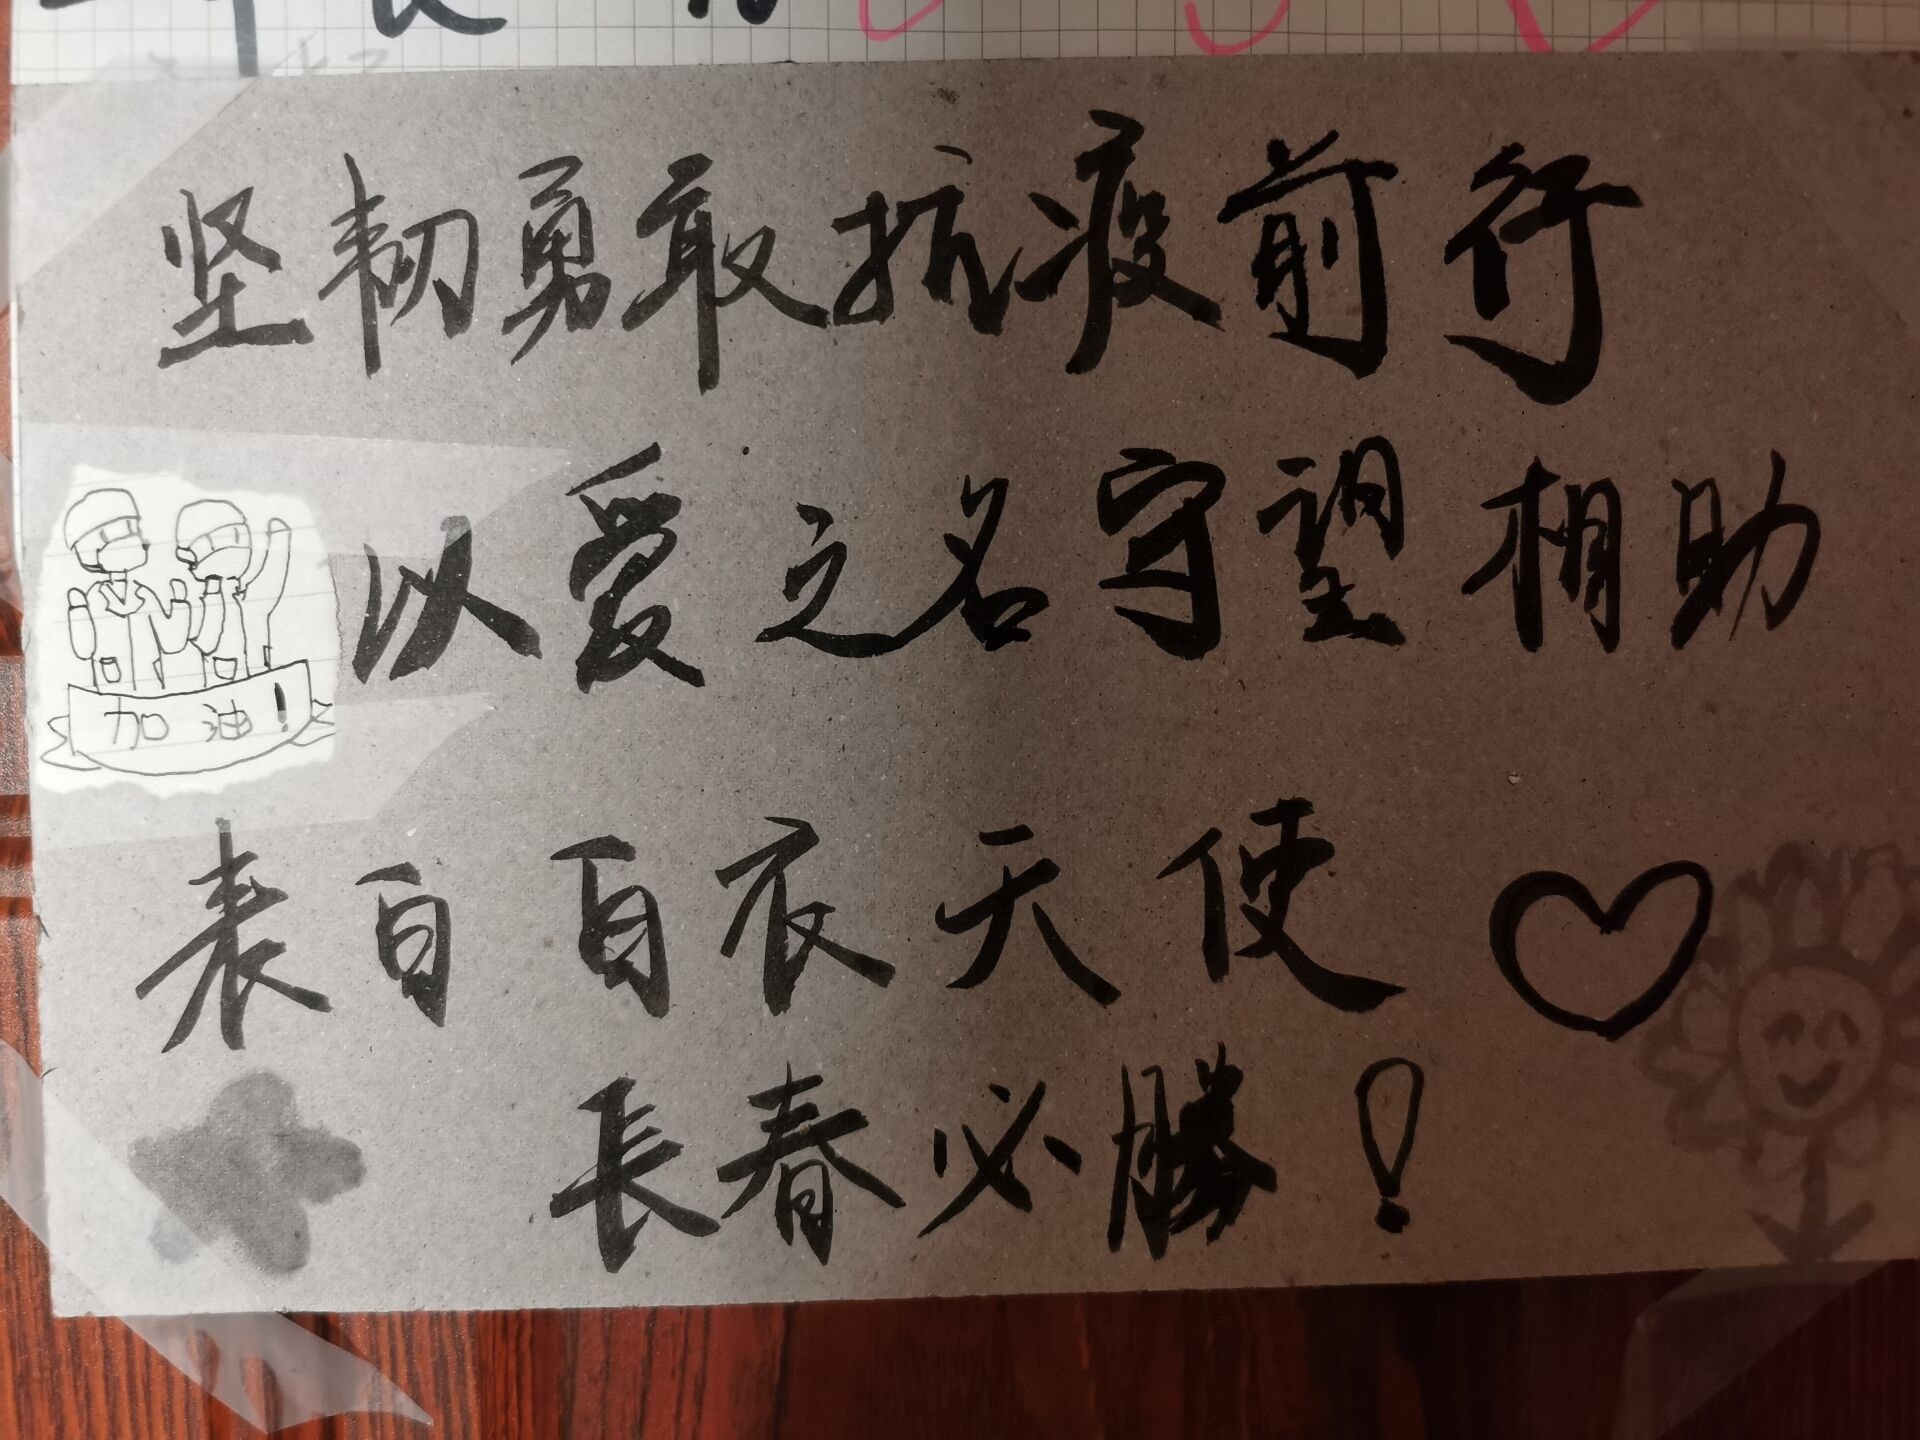 坚韧勇敢抗疫前行
以爱之名守望相助
加油!
表白百衣天使
長春必勝!